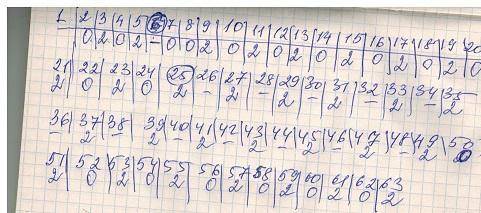 1 | 2 | 3 | 4 | 5 | 6 | 7 | 8 | 9 | 10 | 11 | 12 | 13 | 14 | 15 | 16 | 17 | 18 | 19 | 20
0 | 2 | 0 | 2 | – | 0 | 0 | 2 | 0 | 2 | 0 | 2 | 0 | 2 | 0 | 2 | 0 | 2 | 0
21 | 22 | 23 | 24 | 25 | 26 | 27 | 28 | 29 | 30 | 31 | 32 | 33 | 34 | 35
2 | 0 | 2 | 0 | 2 | – | 2 | – | 2 | – | 2 | – | 2 | – | 2
36 | 37 | 38 | 39 | 40 | 41 | 42 | 43 | 44 | 45 | 46 | 47 | 48 | 49 | 50
– | 2 | – | 2 | – | 2 | – | 2 | – | 2 | – | 2 | – | 2 | 0
51 | 52 | 53 | 54 | 55 | 56 | 57 | 58 | 59 | 60 | 61 | 62 | 63
2 | 0 | 2 | 0 | 2 | 0 | 2 | 0 | 2 | 0 | 2 | 0 | 2